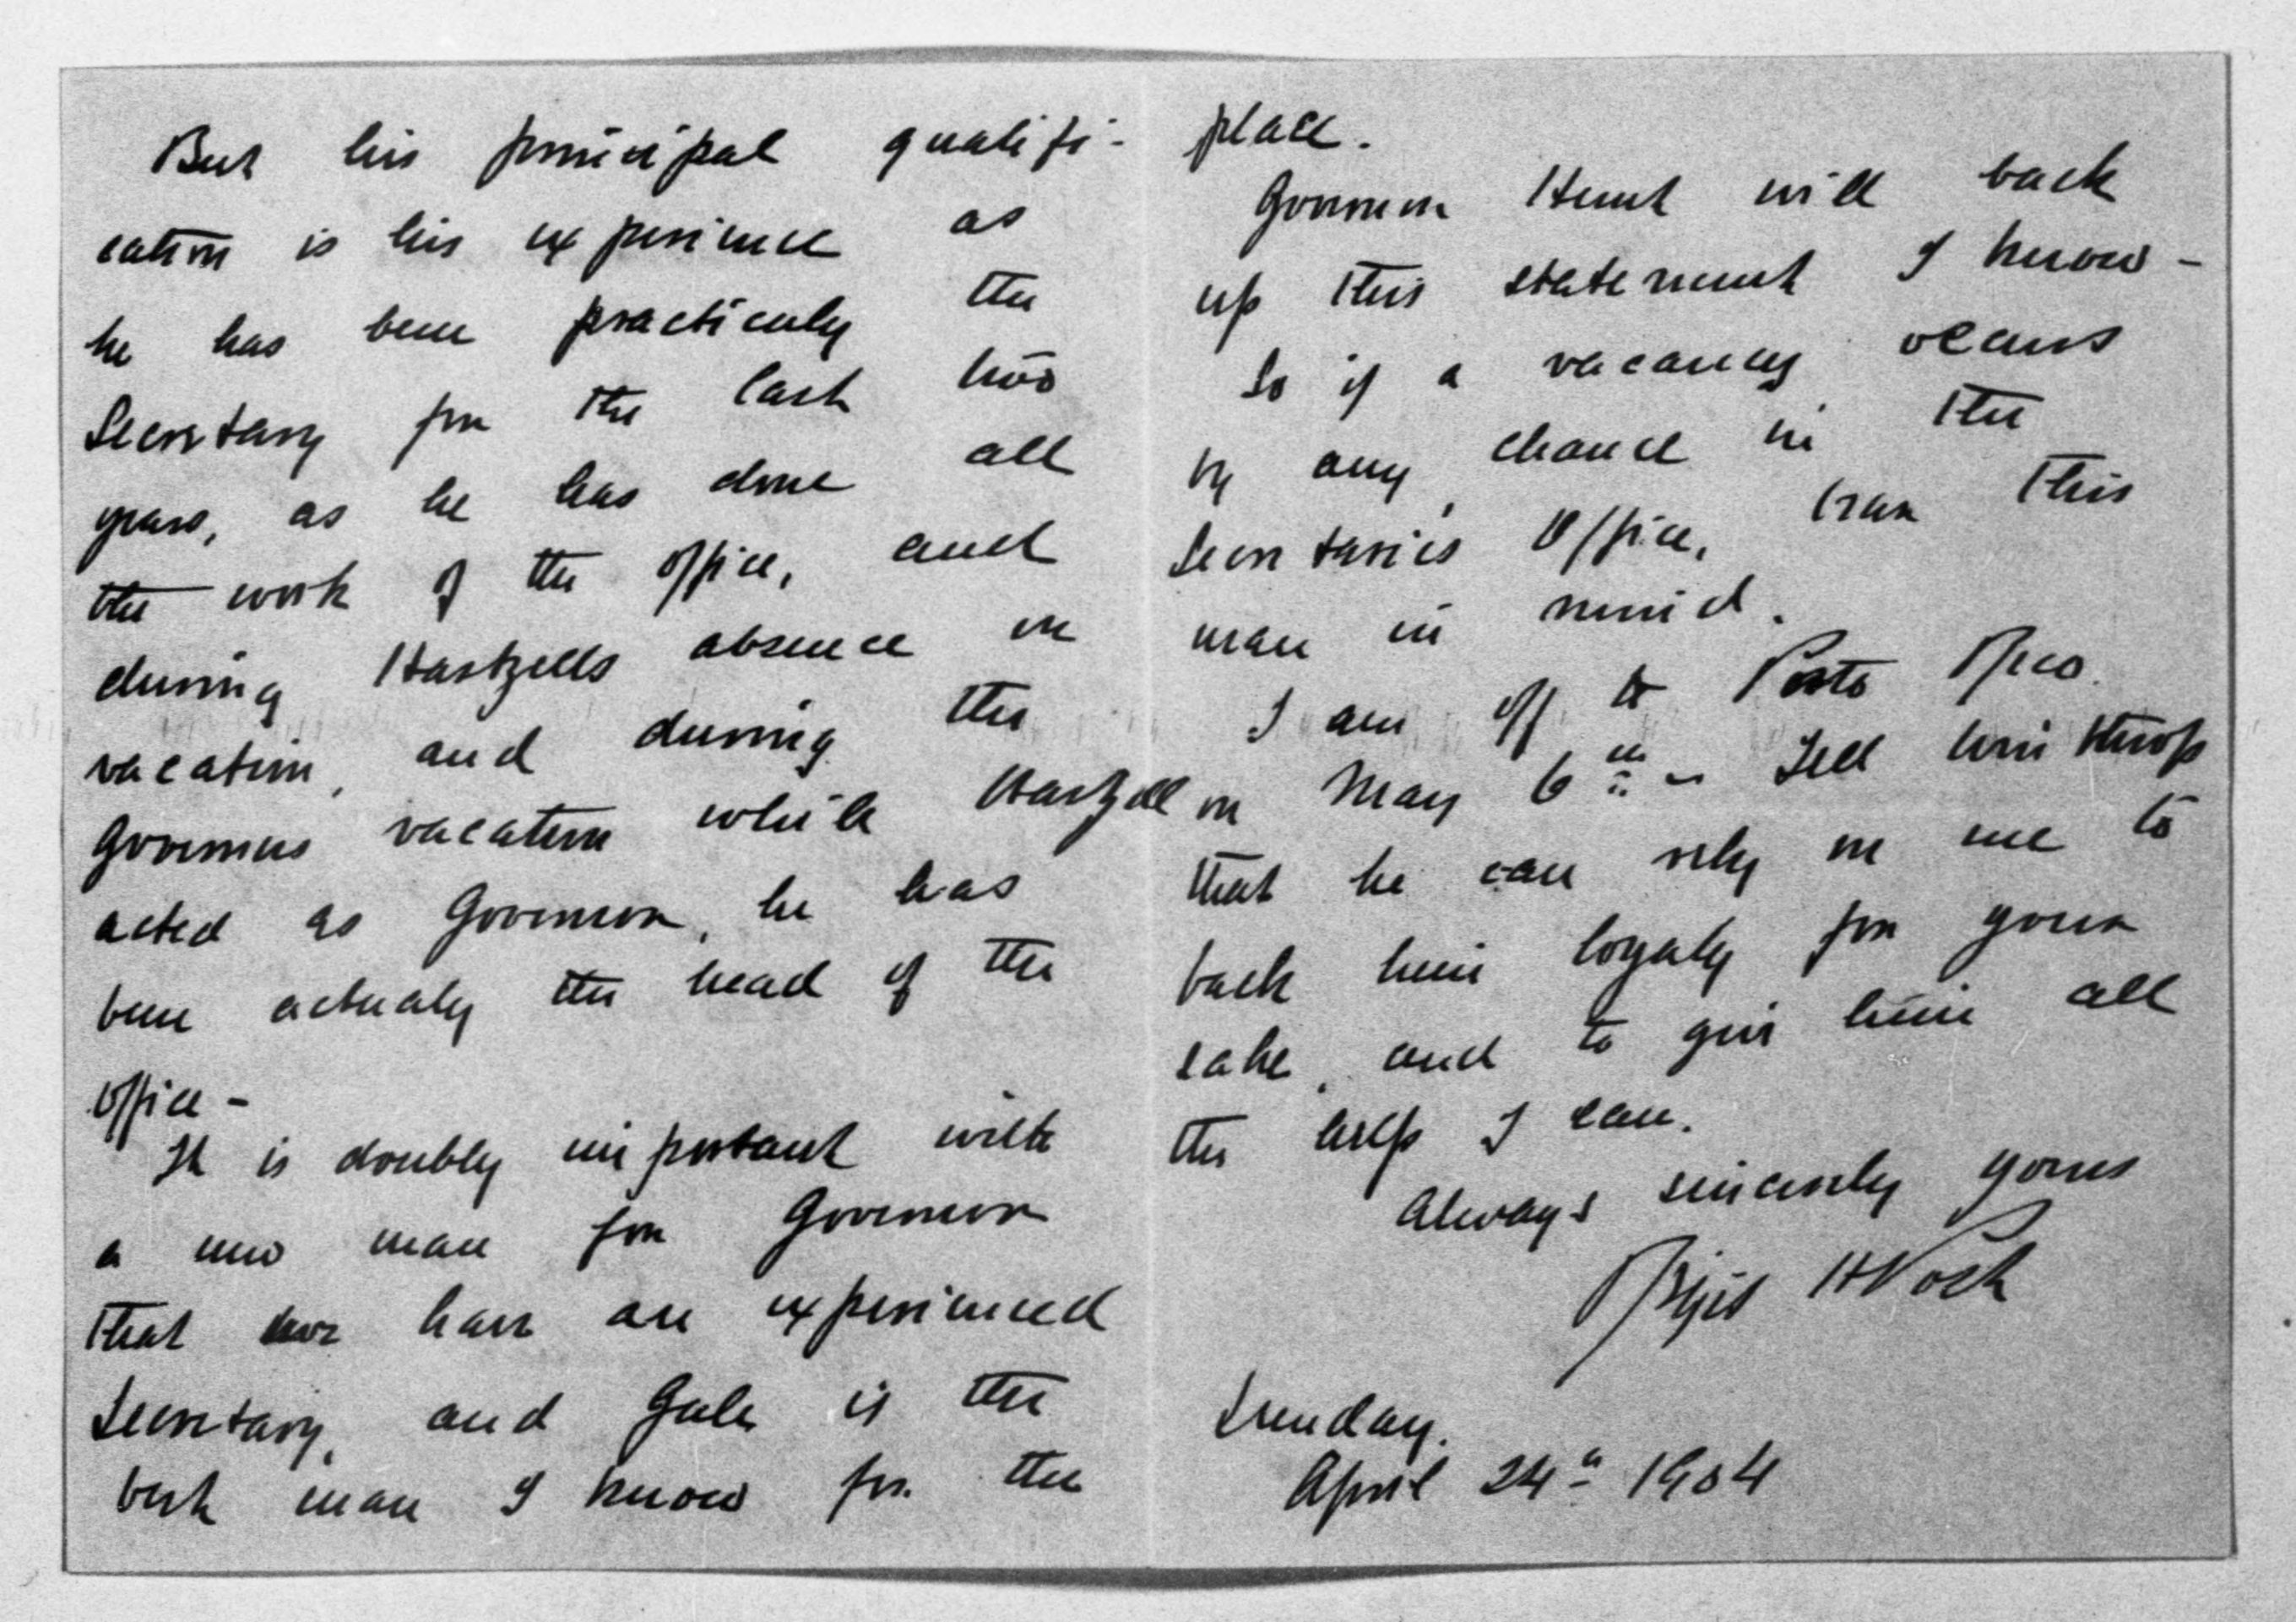 But his principal qualifi-
cation is his experience as
he has been practicaly the
Secretary for the last two
years, as he has done all
the work of the office, and
during Hartzells absence on
vacation, and during the
Governors vacation while Hartzell
acted as Governor, he has
been actualy the head of the
office -
It is doubly important with
a new man for Governor
that we have an experienced
Secretary, and Gale is the
best man I know for the
place.
Governor Hunt will back
up this statement I know -
So if a vacancy occurs
by any chance in the
Secretaries Office, bear this
man in mind.
I am off to Porto Rico
on May 6th - Tell Winthrop
that he can rely on me to
back him loyaly for your
sake, and to give him all
the help I can.
Always sincerely yours
Regis H Post
Sunday.
April 24th 1904